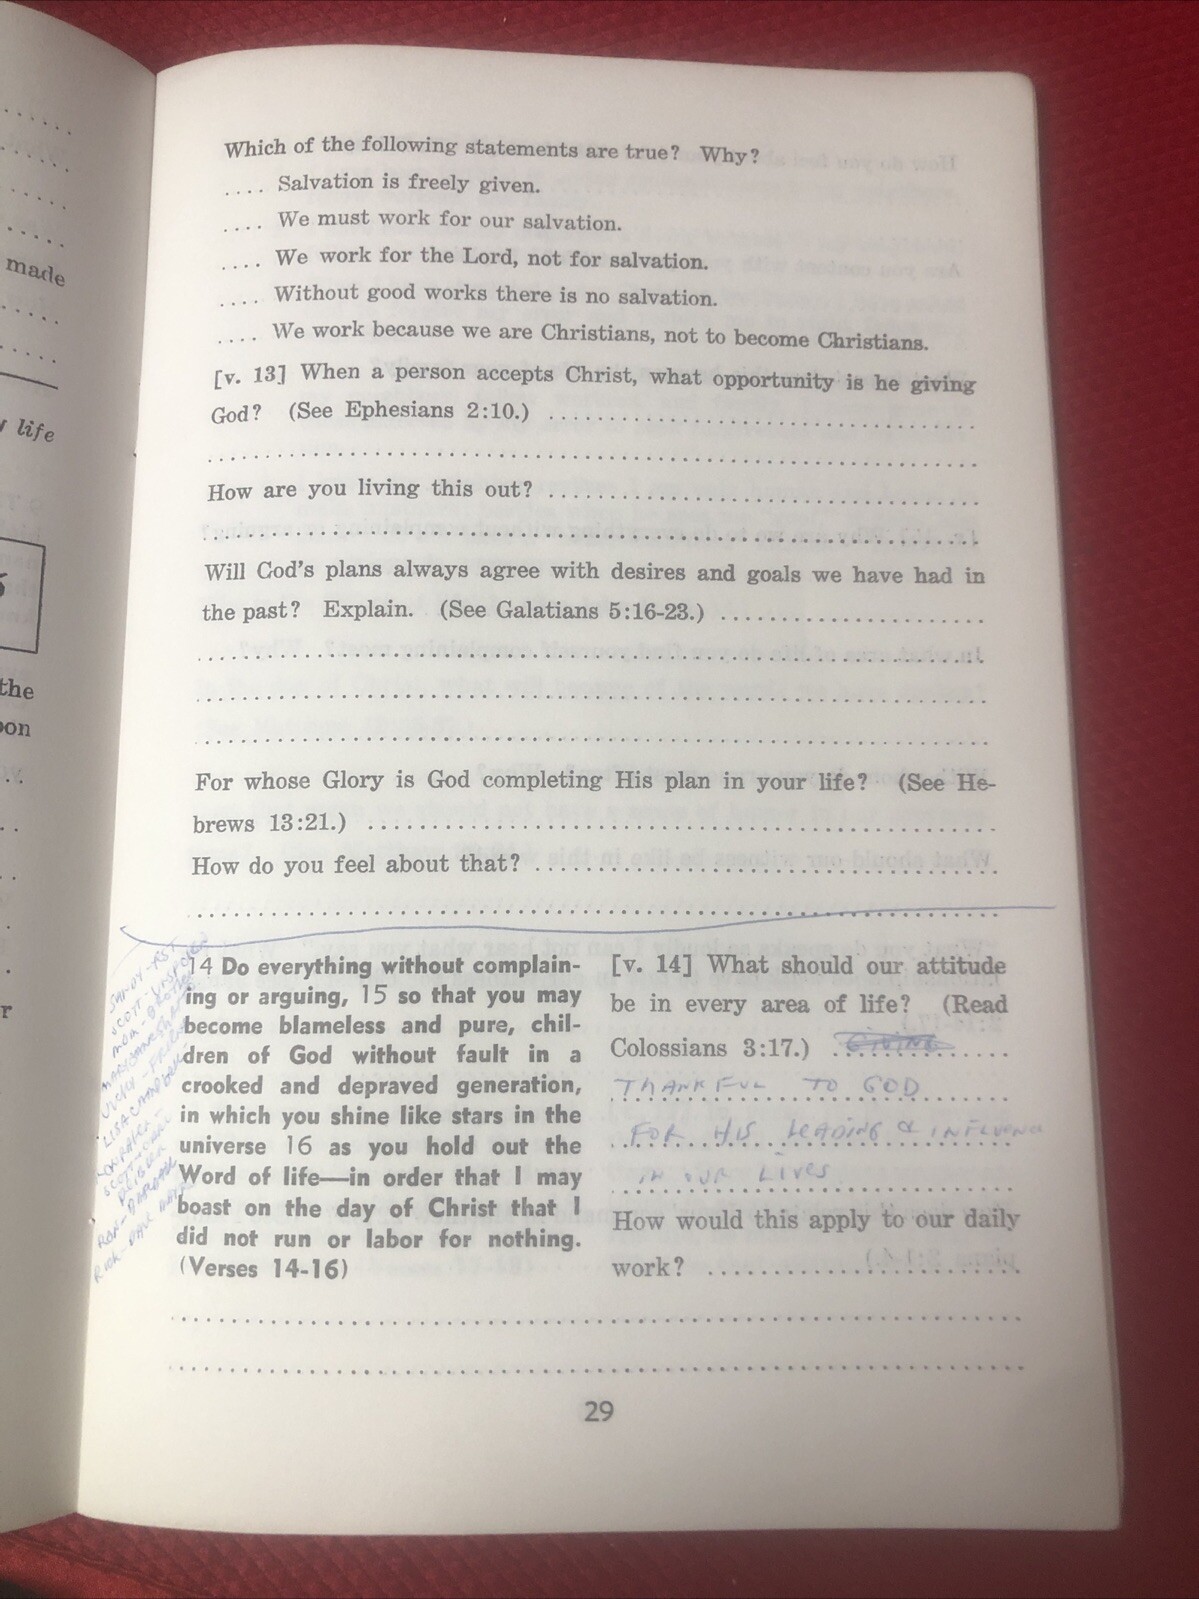 made
life
the
Which of the following statements are true? Why?
.... Salvation is freely given.
.... We must work for our salvation.
.... We work for the Lord, not for salvation.
.... Without good works there is no salvation.
.... We work because we are Christians, not to become Christians.
[v. 13] When a person accepts Christ, what opportunity is he giving
God? (See Ephesians 2:10.)
How are you living this out?
Will God's plans always agree with desires and goals we have had in
the past? Explain. (See Galatians 5:16-23.)
For whose Glory is God completing His plan in your life? (See He-
brews 13:21.)
How do you feel about that?
14 Do everything without complain-
ing or arguing, 15 so that you may
become blameless and pure, chil-
dren of God without fault in a
crooked and depraved generation,
in which you shine like stars in the
universe 16 as you hold out the
Word of life—in order that I may
boast on the day of Christ that I
did not run or labor for nothing.
(Verses 14-16)
[v. 14] What should our attitude
be in every area of life? (Read
Colossians 3:17.) GIVING
THANKFUL TO GOD
FOR HIS LEADING & INFLUENC
IN OUR LIVES
How would this apply to our daily
work?
SANDY-
SCOTT-
MOM-
JUDY-FRIEND
LISA
SCOTT-
RON-
RICK-
29